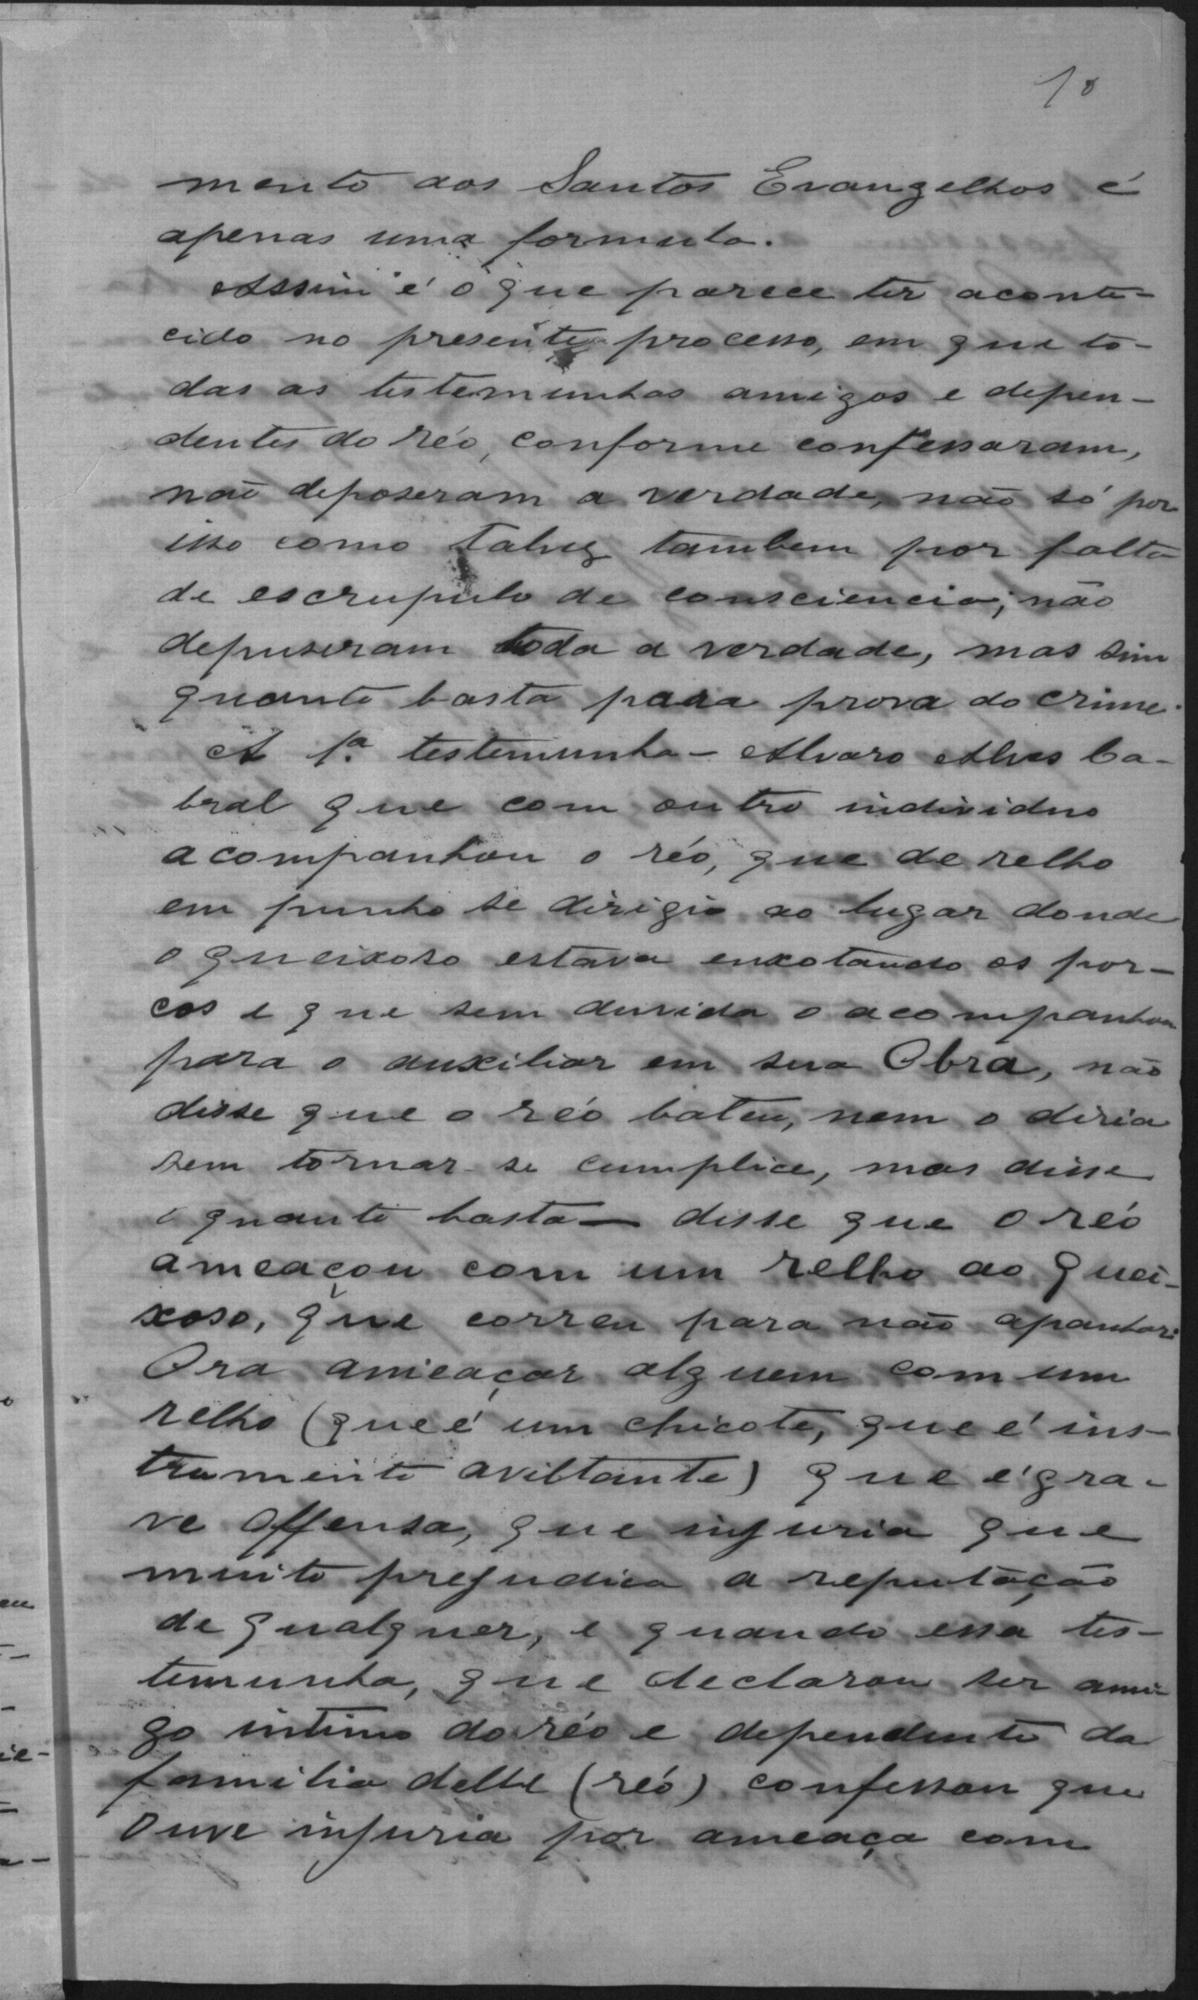 10
mento aos Santos Evangelhos é
apenas uma formula.
Assim é o que parece ter aconte-
cido no presente processo, em que to-
das as testemunhas amigos e depen-
dentes do réo, conforme confessaram,
não deposeram a verdade, não só por
isso como talvez tambem por falta
de escrupulo de consciencia; não
depuseram toda a verdade, mas sim
quanto basta para prova do crime.
A 1ª testemunha - Alvaro Alves Ca-
bral que com outro individuo
acompanhou o réo, que de relho
em punho se dirigio ao lugar donde
o queixoso estava enxotando os por-
cos e que sem duvida o acompanhou
para o auxiliar em sua Obra, não
disse que o réo bateu, nem o diria
sem tornar-se cumplice, mas disse
o quanto basta — disse que o réo
ameaçou com um relho ao quei-
xoso, que correu para não apanhar.
Ora ameaçar alguem com um
relho (que é um chicote, que é ins-
trumento aviltante) que é gra-
ve offensa, que injuria que
muito prejudica a reputação
de qualquer, e quando essa tes-
temunha, que declarou ser ami-
go intimo do réo e dependente da
familia delle (réo) confessou que
ouve injuria por ameaça com